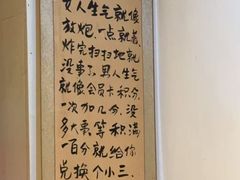 女人生气就像
放炮,一点就着
炸完扫扫地就
没事了,男人生气
就像会员卡积分,
一次加几分,没
多大事,等积满
一百分就给你
兑换个小三.